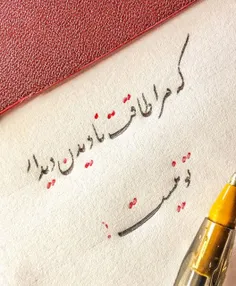 که مرا طاقت نادیدن دیدار
تو نیست!